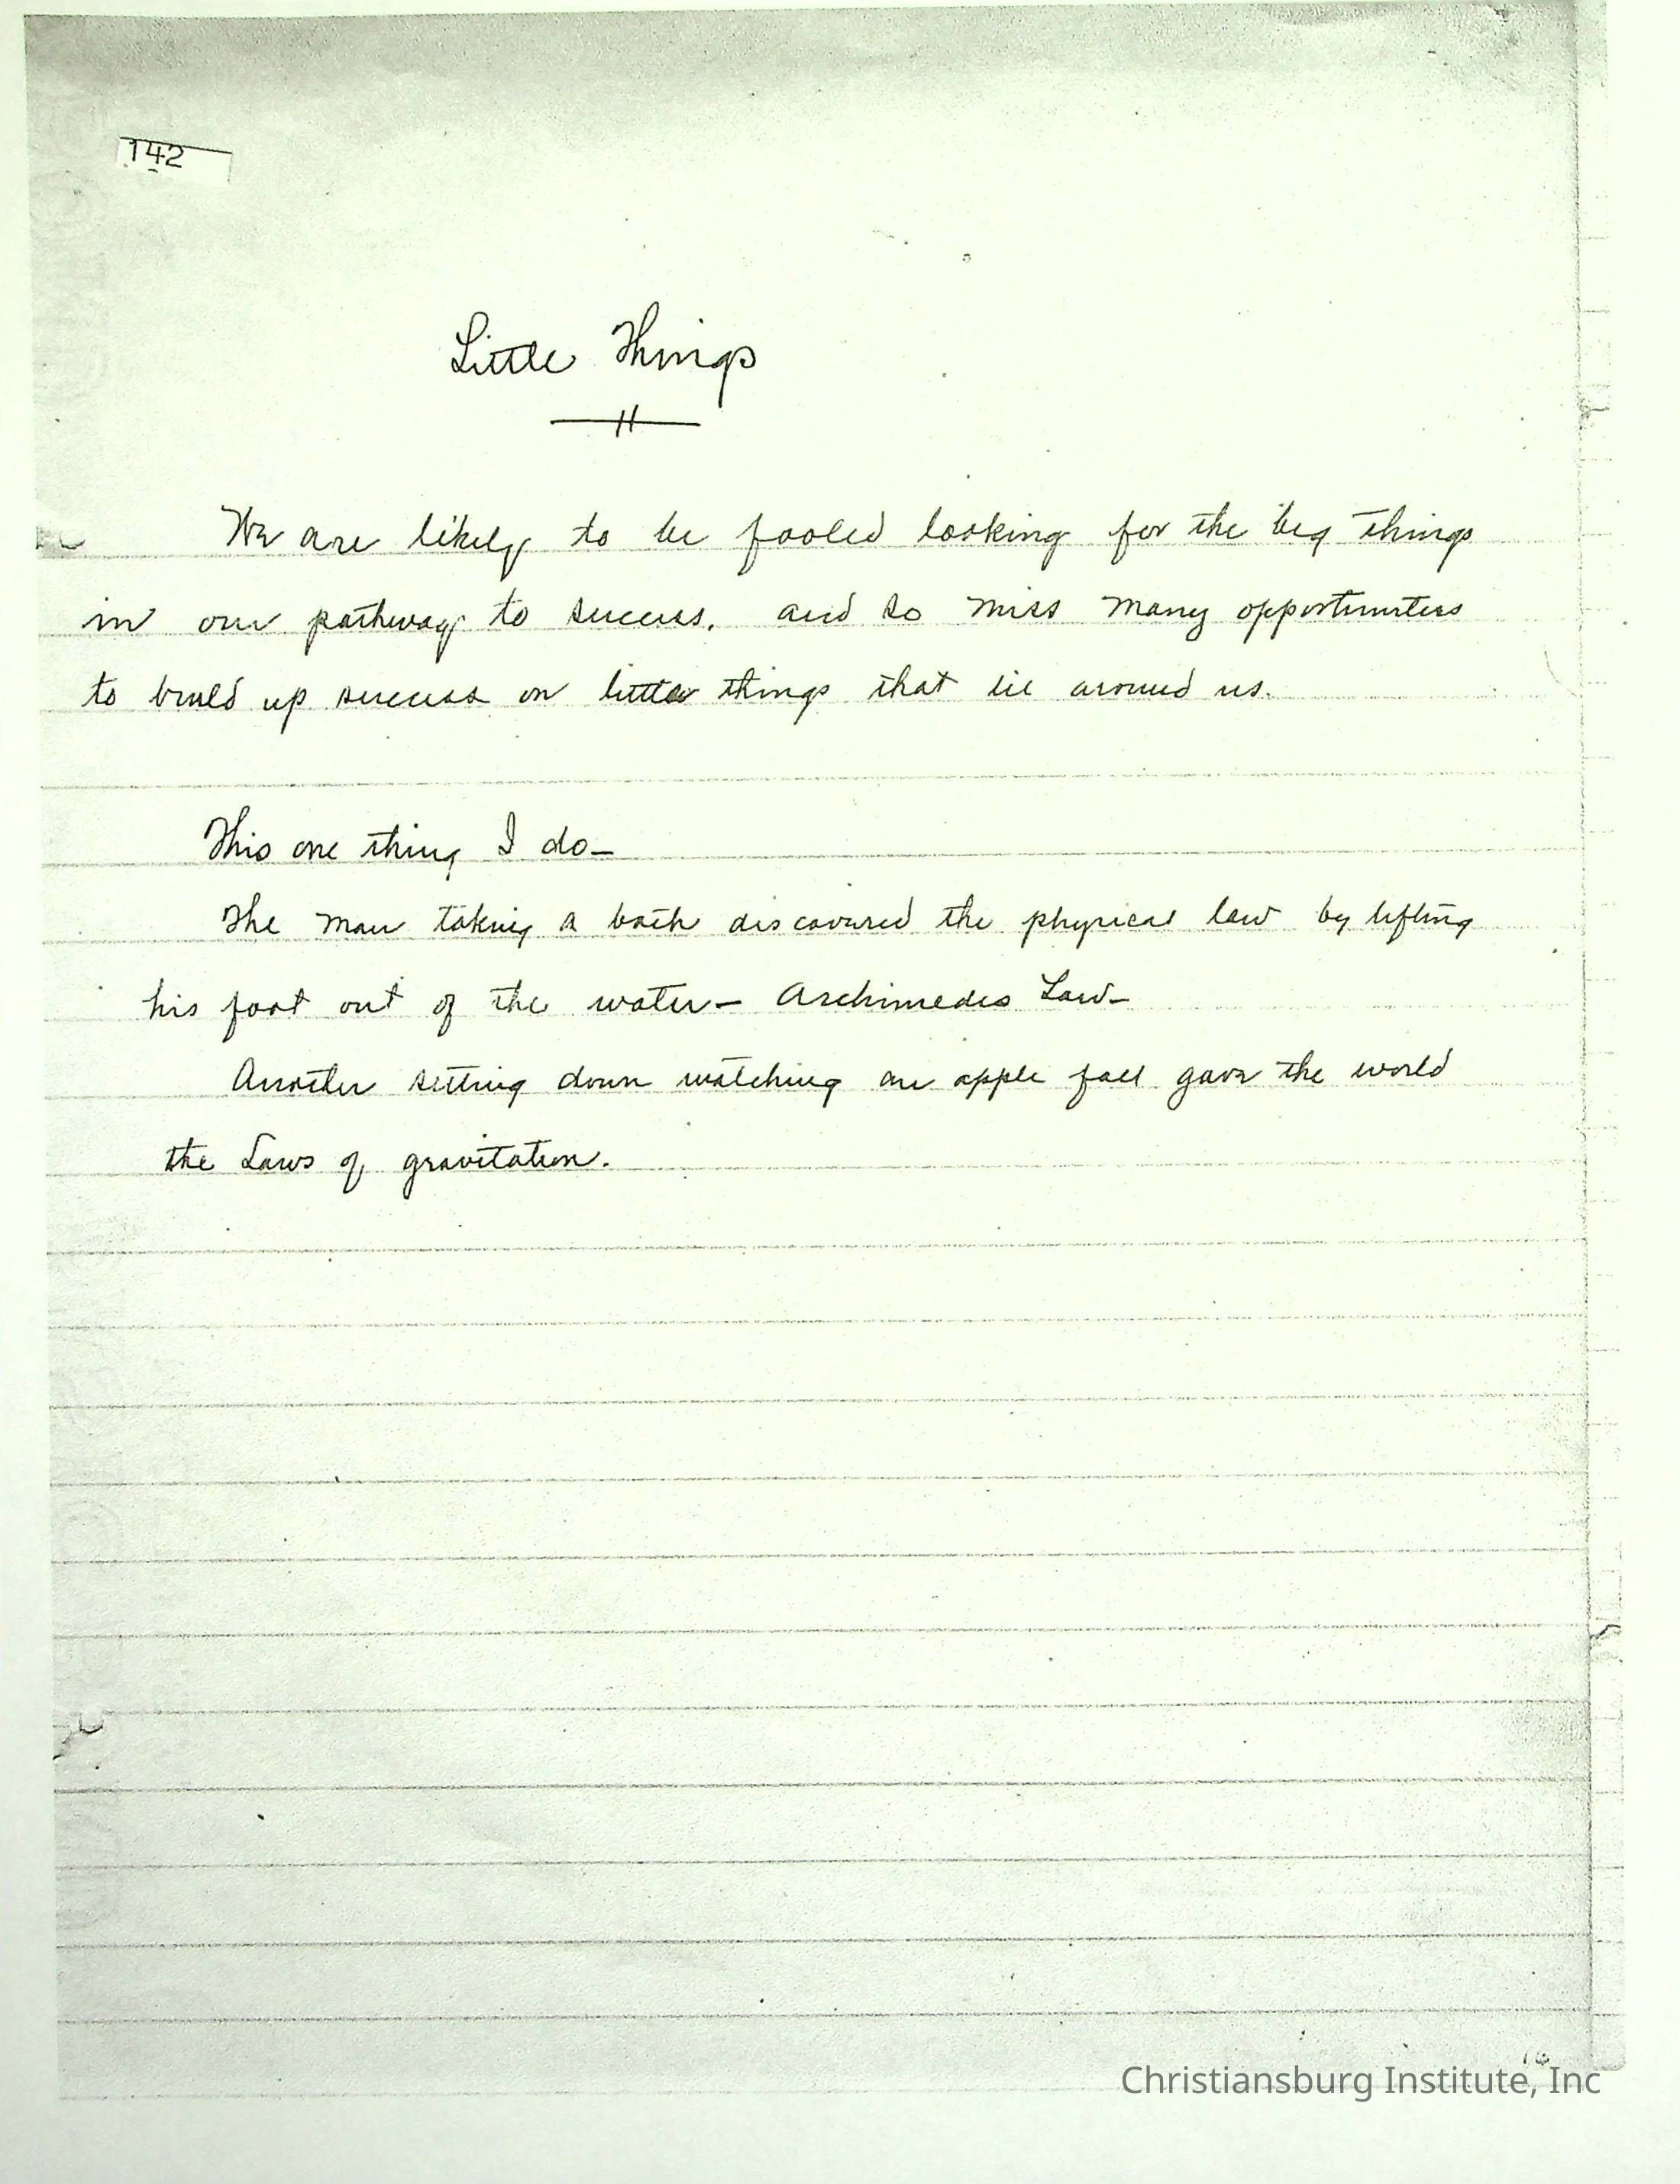 142
Little Things
We are likely to be fooled looking for the big things
in our pathway to success, and so miss many opportunities
to build up success on little things that lie around us.
This one thing I do—
The man taking a bath discovered the physical law by lifting
his foot out of the water— Archimedes Law—
Another sitting down watching an apple fall gave the world
the Laws of gravitation.
Christiansburg Institute, Inc